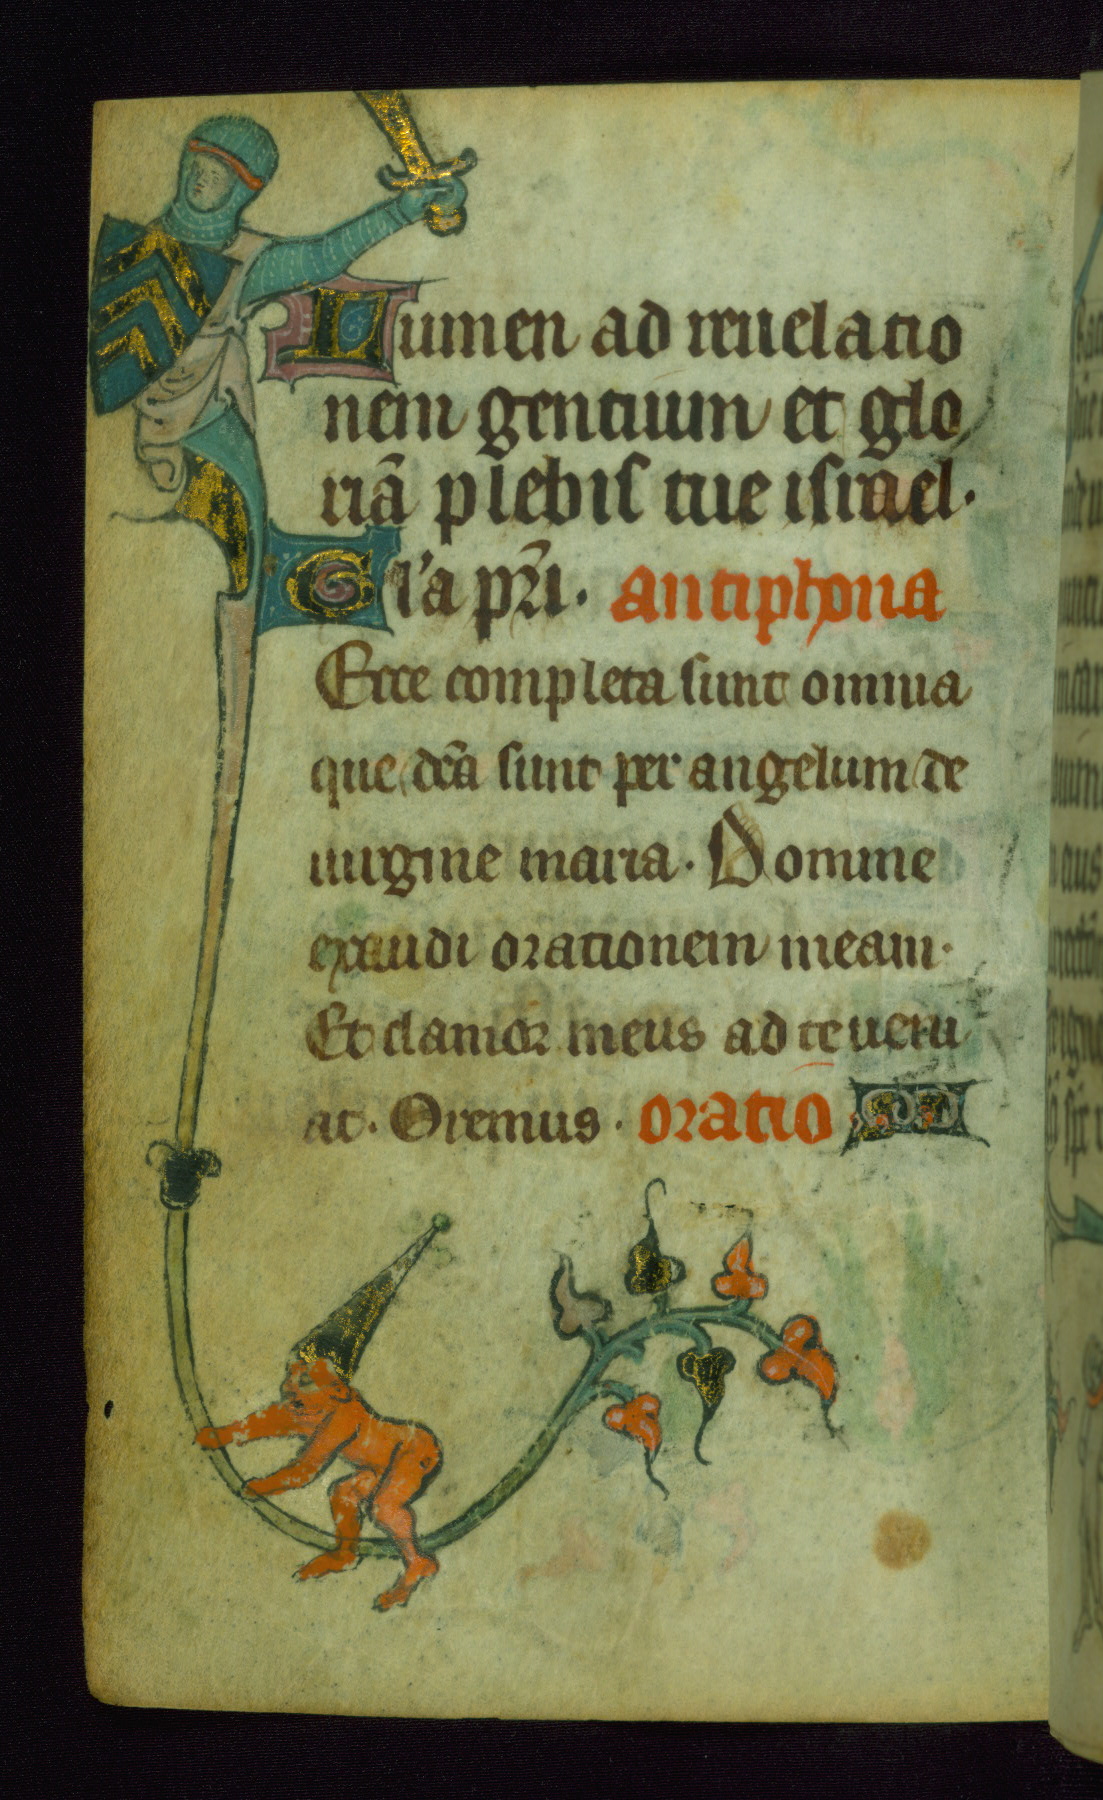 Lumen ad reuelatio
nem gentium et glo
riā plebis tue israel.
Gl'a pr̄i. antiphona
Ecce completa sunt omnia
que dc̄a sunt per angelum de
uirgine maria. Domine
exaudi orationem meam.
Et clamor meus ad te ueni
at. Oremus. oratio